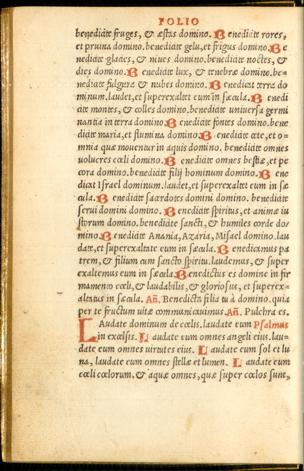 FOLIO
benedicite fruges, & æstas domino. Benedicite rores,
et pruina domino. benedicite gelu, et frigus domino. Be
nedicite glacies, & niues domino. benedicite noctes, &
dies domino. Benedicite lux, & tenebræ domino. be-
nedicite fulgura & nubes domino. Benedicat terra do
minum. laudet, et superexaltet eum in sæcula. Benedi
cite montes, & colles domino. benedicite uniuersa germi
nantia in terra domino. Benedicite fontes domino. bene
dicite maria, et flumina domino. Benedicite cete, et o-
mnia quæ mouentur in aquis domino. benedicite omnes
uolucres cœli domino. Benedicite omnes bestiæ, et pe
cora domino. benedicite filij hominum domino. Bene
dicat Israel dominum. laudet, et superexaltet eum in sæ
cula. Benedicite sacerdotes domini domino. benedicite
serui domini domino. Benedicite spiritus, et animæ iu
storum domino. benedicite sancti, & humiles corde do-
mino. Benedicite Anania, Azaria, Misael domino. lau
date, et superexaltate eum in sæcula. Benedicamus pa
trem, & filium cum sancto spiritu. laudemus, & super
exaltemus eum in sæcula. Benedictus es domine in fir
mamento cœli, & laudabilis, & gloriosus, et superex-
altatus in sæcula. Añ. Benedicta filia tu à domino. quia
per te fructum uitæ communicauimus Añ. Pulchra es.
Laudate dominum de cœlis. laudate eum Psalmus
in excelsis. Laudate eum omnes angeli eius. lau-
date eum omnes uirtutes eius. Laudate eum sol et lu
na. laudate eum omnes stellæ et lumen. Laudate eum
cœli cœlorum. & aquæ omnes, quæ super cœlos sunt,